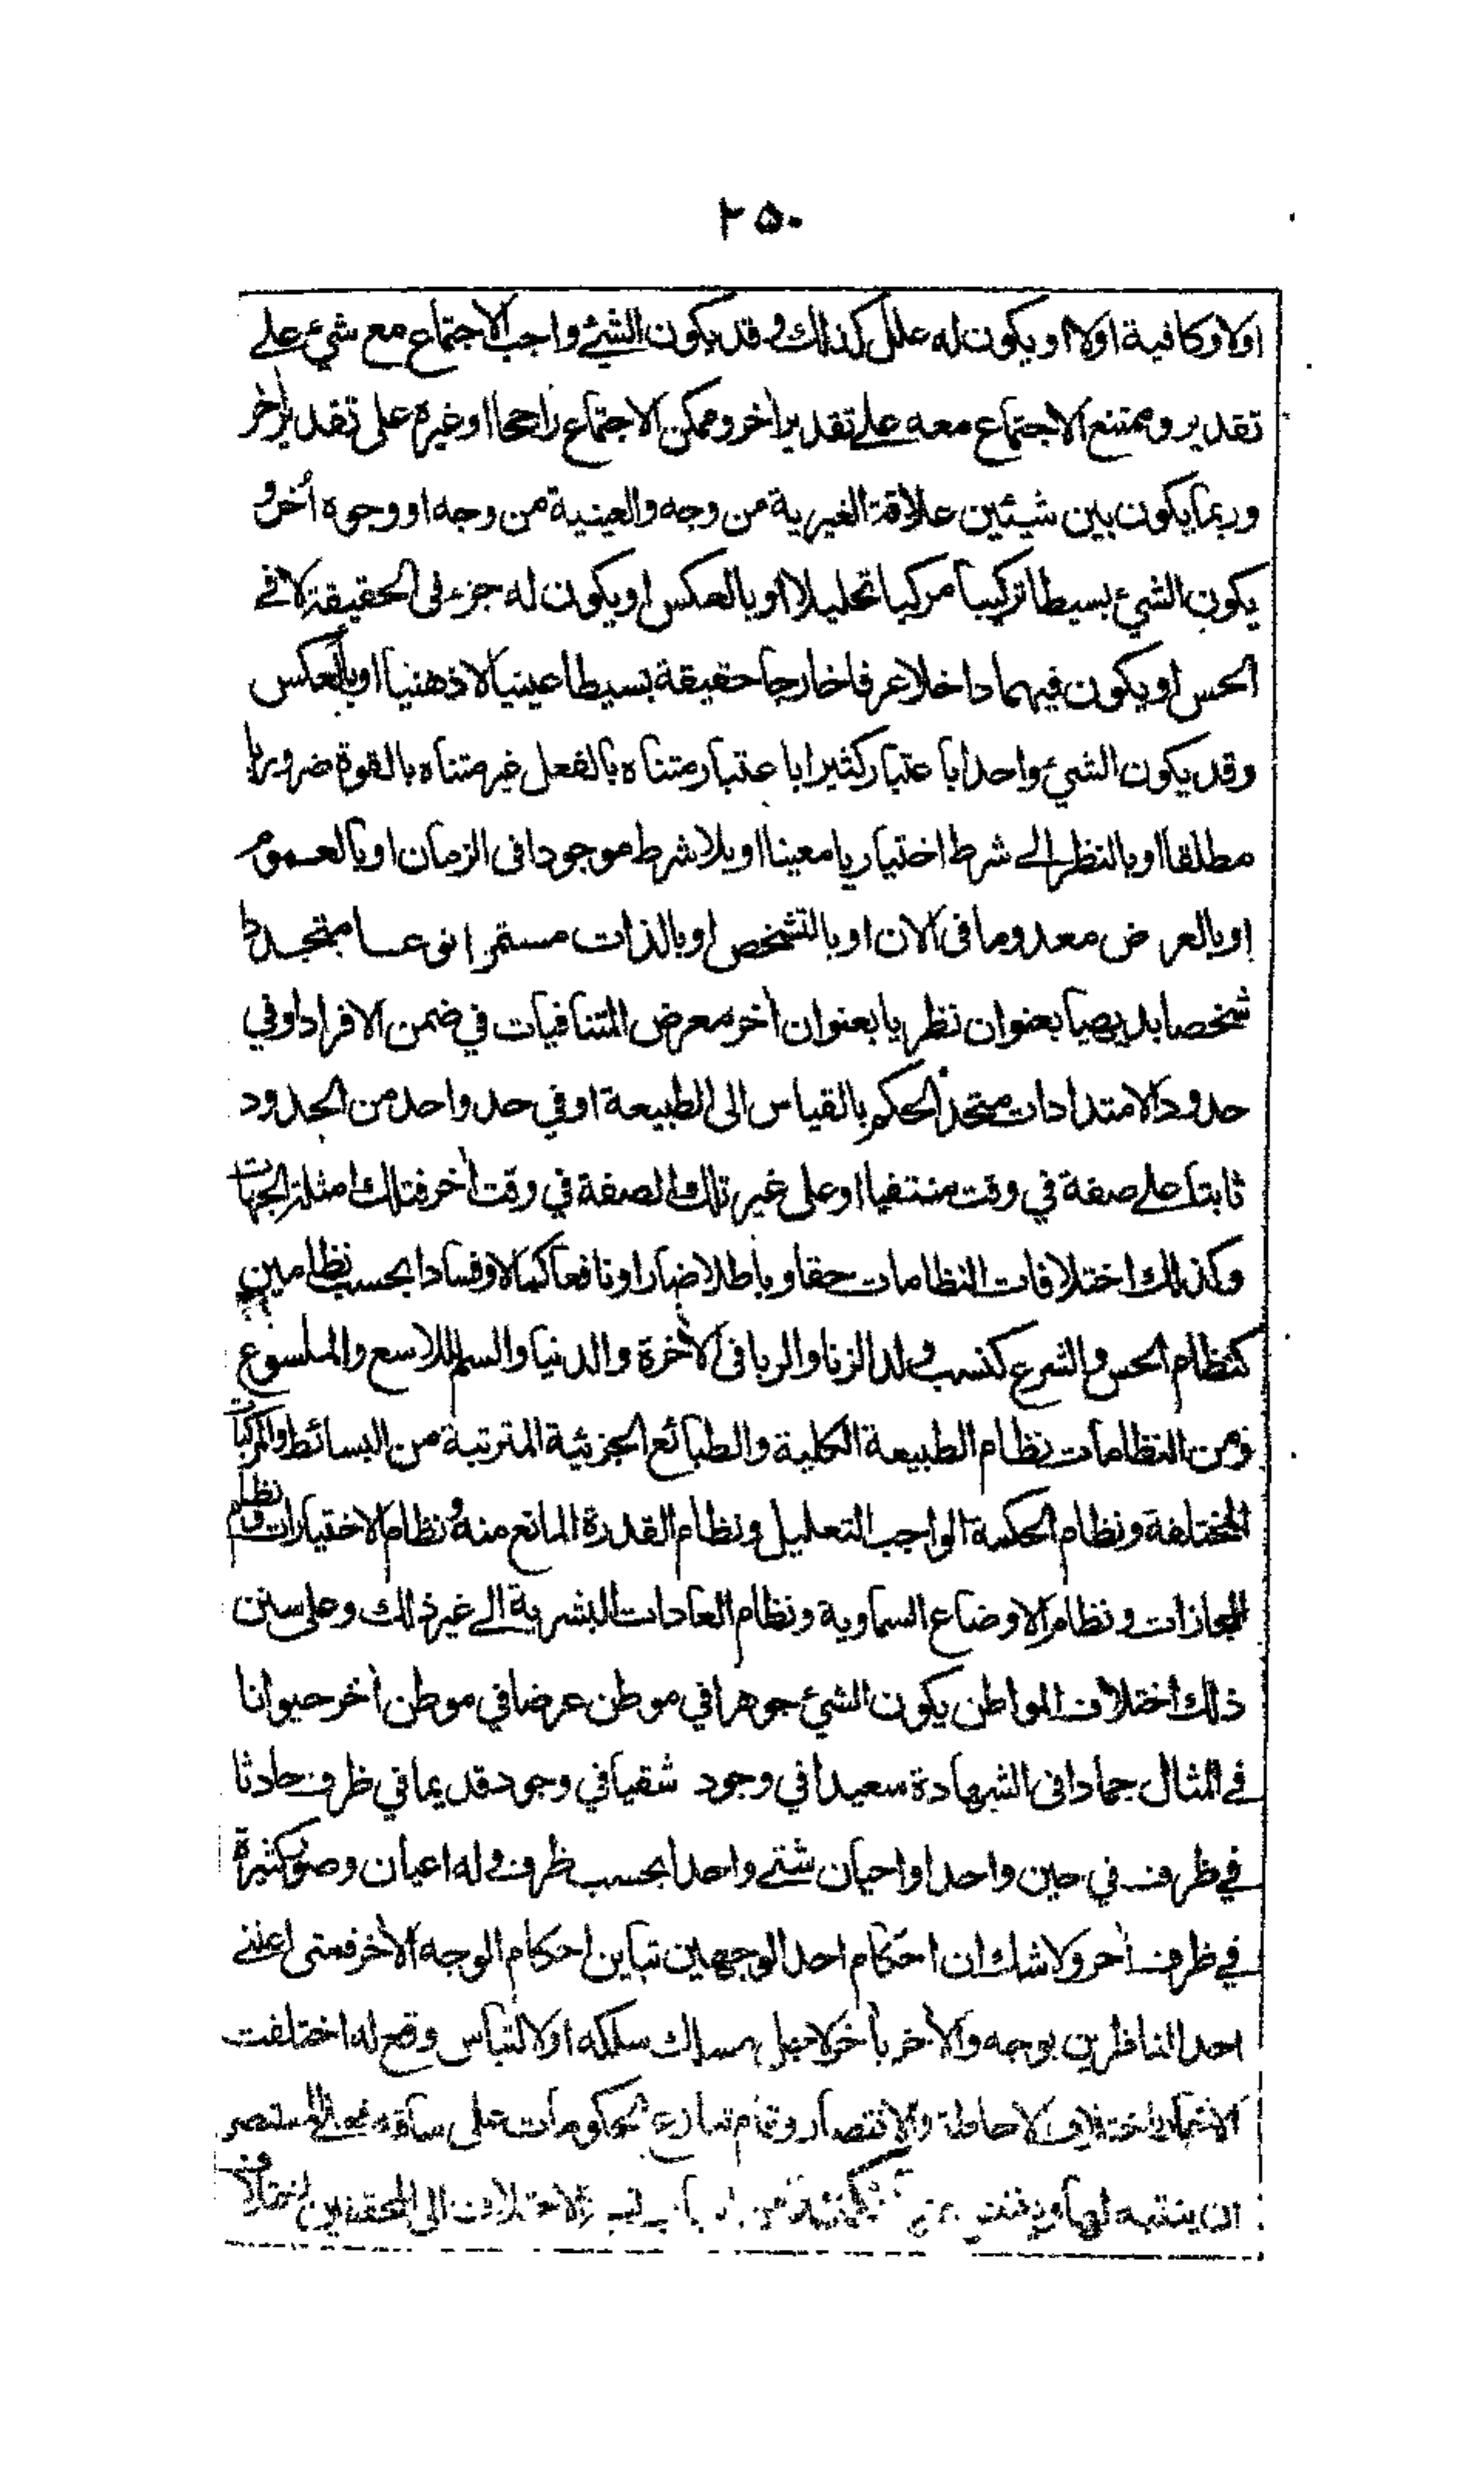 ٢٥٠
اولا وكافية اولا او يكون له علل كذلك وقد يكون الشئ واجب الاجتماع مع شئ على
تقدير وممتنع الاجتماع معه على تقدير آخر وممكن الاجتماع راجحا او غيره على تقدير آخر
وربما يكون بين شيئين علاقة الغيرية من وجه والعينية من وجه او وجوه أخر و
يكون الشئ بسيطا تركيبا مركبا تحليلا او بالعكس او يكون له جزء فى الحقيقة لا فى
الحس او يكون فيهما داخلا عرفا خارجا حقيقة بسيطا عينيا لا ذهنيا او بالعكس
وقد يكون الشئ واحدا باعتبار كثيرا باعتبار متناه بالفعل غير متناه بالقوة ضروريا
مطلقا او بالنظر الى شرط اختياريا معينا او بلا شرط موجودا فى الزمان او بالعموم
او بالعرض معدوما فى الان او بالتشخص او بالذات مستمرا نوعا متجددا
شخصا بديهيا بعنوان نظريا بعنوان آخر معرض المتنافيات في ضمن الافراد او في
حدود الامتدادات متحد الحكم بالقياس الى الطبيعة او في حد واحد من الحدود
ثابتا على صفة في وقت منتفيا او على غير تلك الصفة في وقت آخر فتلك امثلة الجهات
وكذلك اختلافات النظامات حقا وباطلا ضارا ونافعا كمالا وفسادا بحسب نظامين
كنظام الحس والشرع كنسب ولد الزنا والربا فى الآخرة والدنيا والسم للاسع والملسوع
ومن النظامات نظام الطبيعة الكلية والطبائع الجزئية المترتبة من البسائط والمركبات
المختلفة ونظام الحكمة الواجب التعليل ونظام القدرة المانع منه ونظام الاختيارات ونظام
المجازات ونظام الاوضاع السماوية ونظام العادات البشرية الى غير ذلك وعلى سنن
ذلك اختلاف المواطن يكون الشئ جوهرا في موطن عرضا في موطن آخر حيوانا
في المثال جمادا فى الشهادة سعيدا في وجود شقيا في وجود قديما في ظرف حادثا
في ظرف في حين واحد او احيان شتى واحدا بحسب ظرف وله اعيان وصور كثيرة
في ظرف آخر ولا شك ان احكام احد الوجهين تباين احكام الوجه الآخر فمتى اعتنى
احد الناظرين بوجه والآخر بآخر لاجل مسلك سلكه او لالتباس وقع له اختلفت
الاحكام باختلاف الاحاطة والاقتصار وقام تنازع الحكومات على ساقه فعلى المستبصر
ان يتنبه لها ويفتش الاختلاف الى المحققين اختلاف